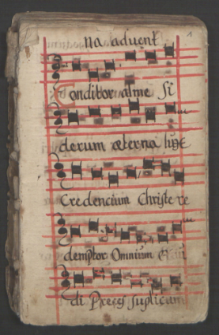 na advent
onditor alme si
derum æterna lux
Credencium Christe re
demptor Omnium
di Preces suplicum